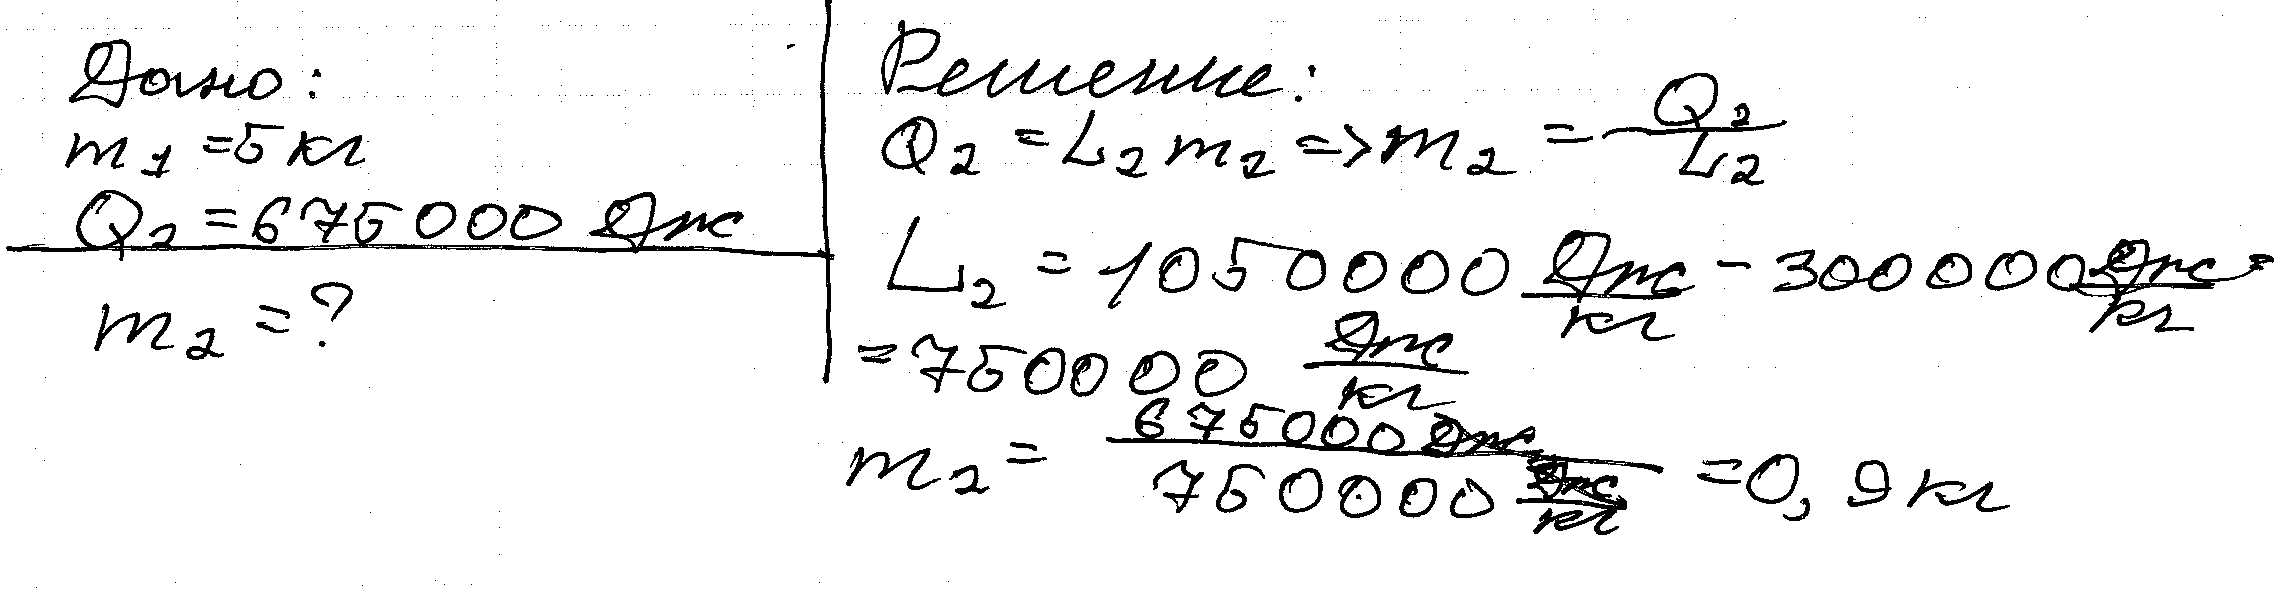 Дано:
m₁ = 5 кг
Q₂ = 675000 Дж
m₂ = ?
Решение:
Q₂ = L₂ m₂ => m₂ = Q₂ / L₂
L₂ = 1050000 Дж/кг - 300000 Дж/кг =
= 750000 Дж/кг
m₂ = 675000 Дж / 750000 Дж/кг = 0,9 кг